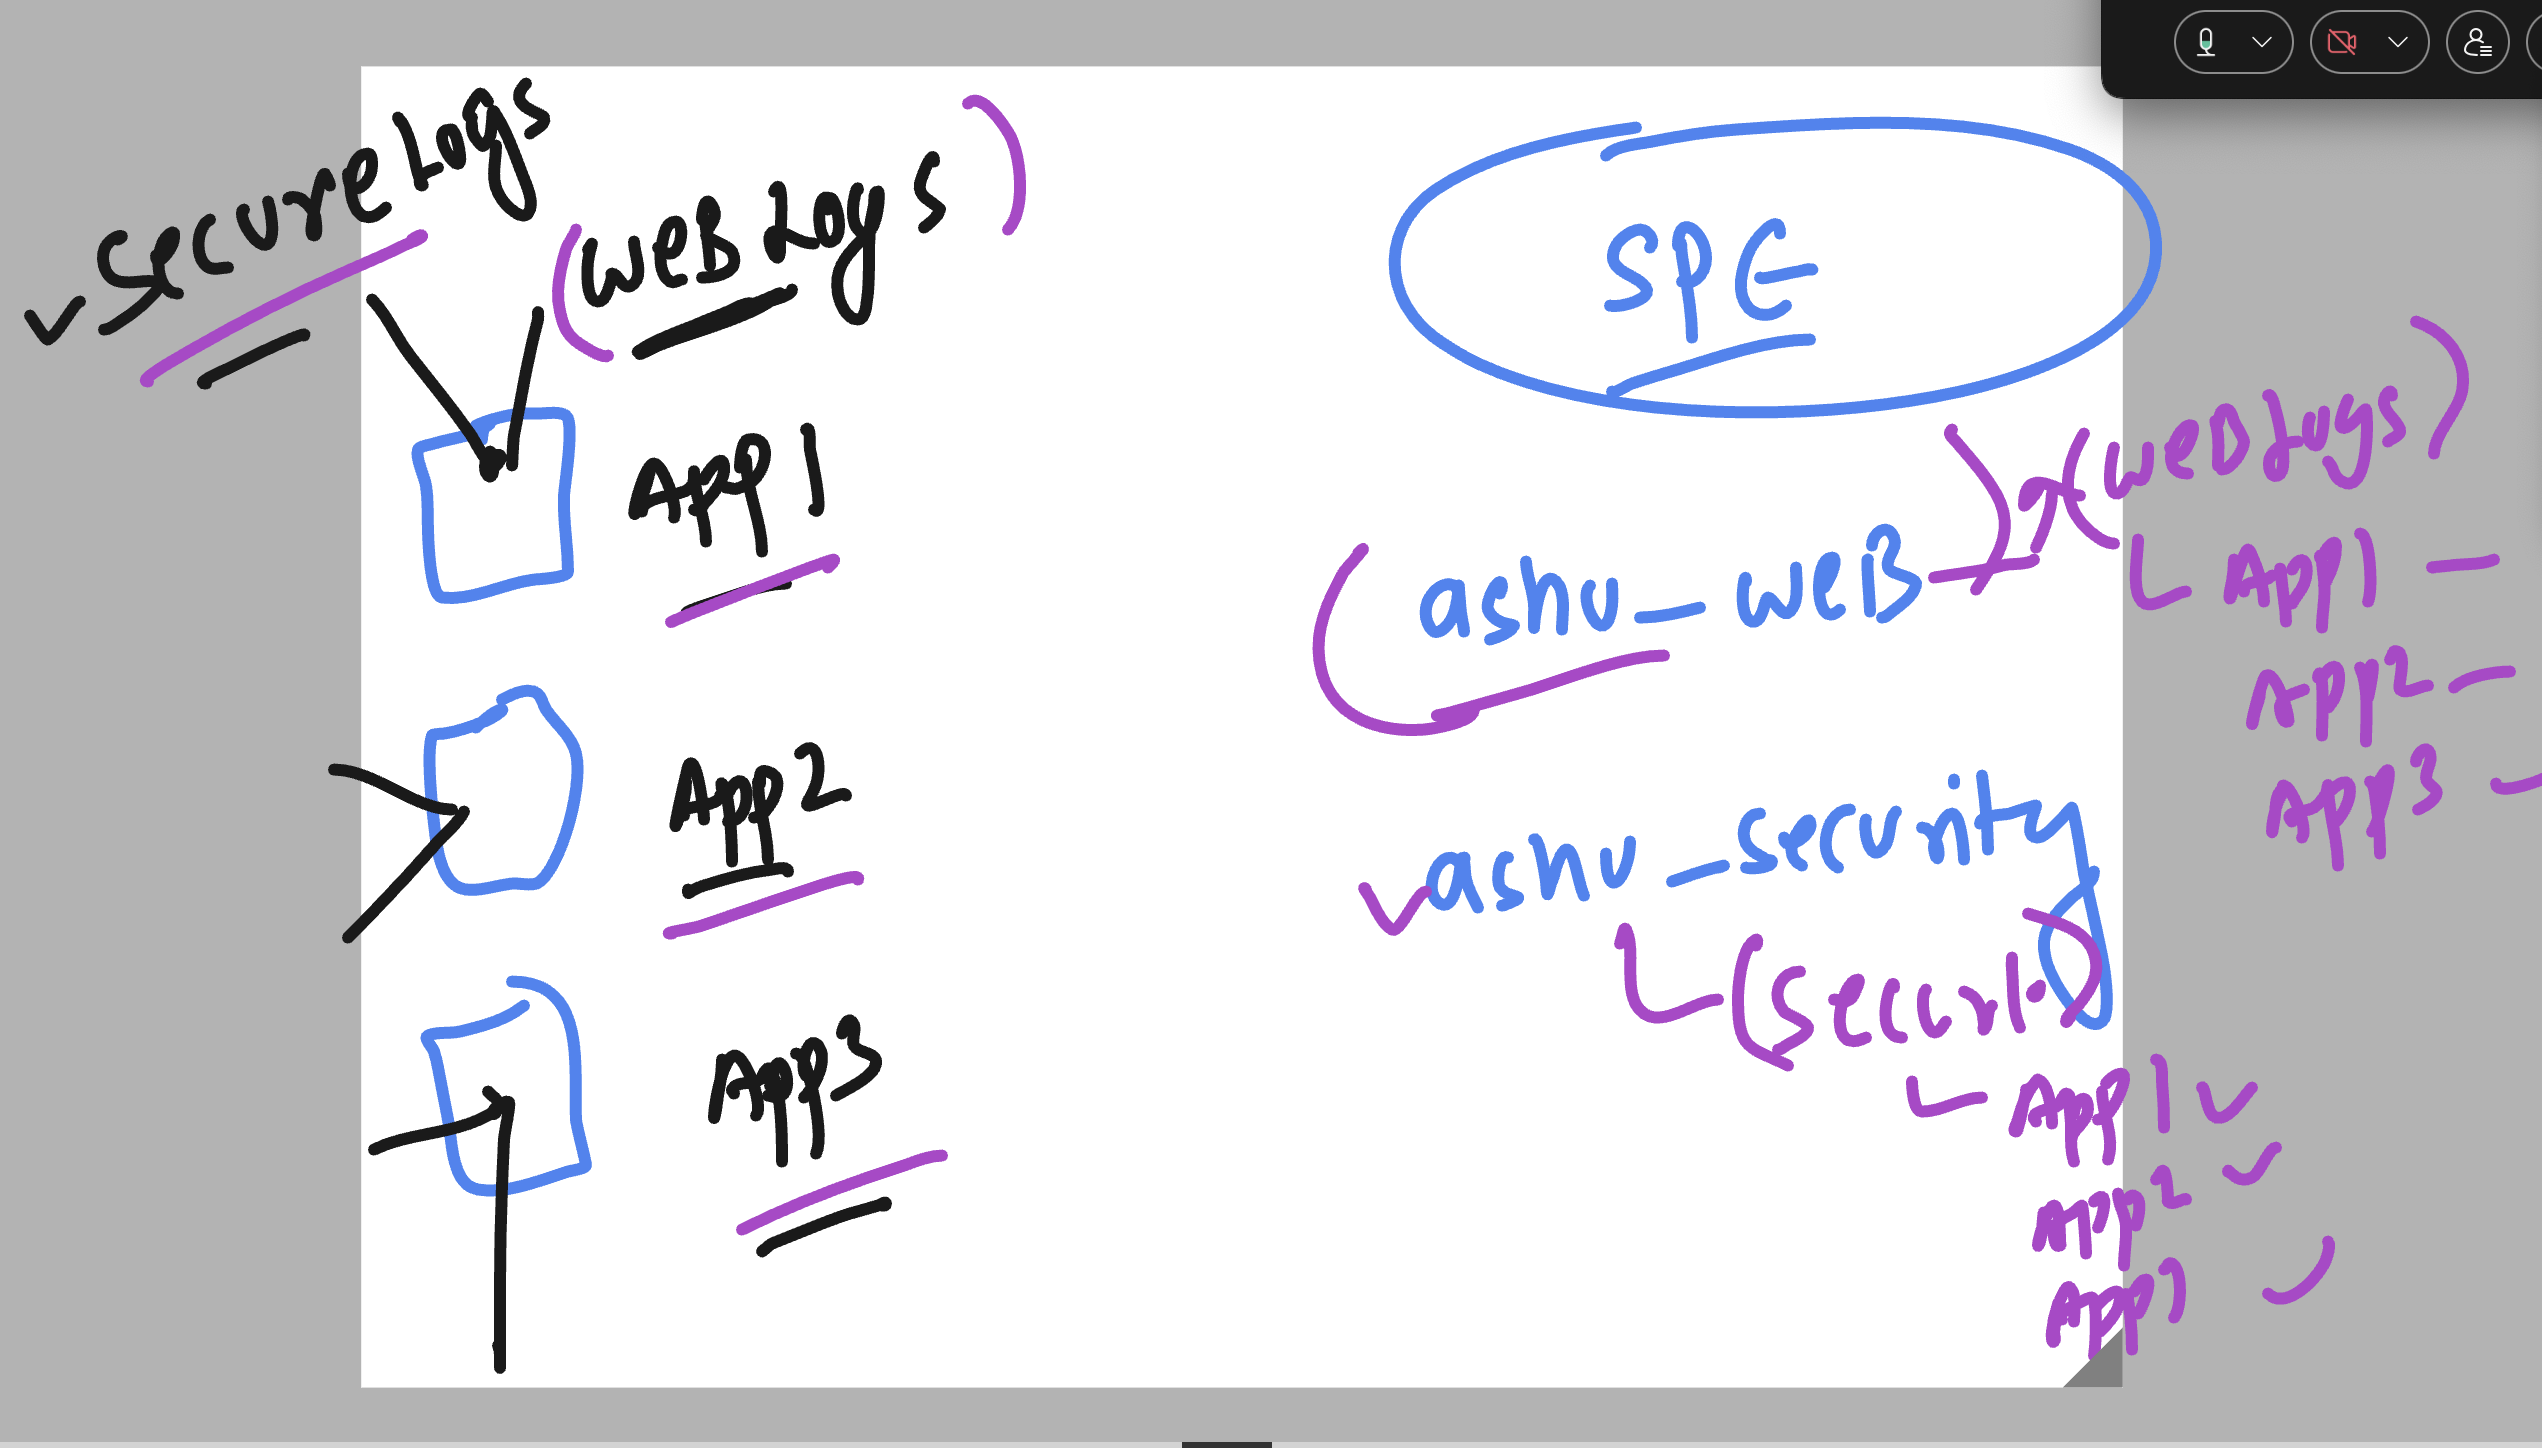 secureLogs
(weB Logs)
App 1
App2
App3
SPE
ashu_weB
(weB Logs)
App1
App2
App3
ashu_security
(secure)
App1
App2
App3